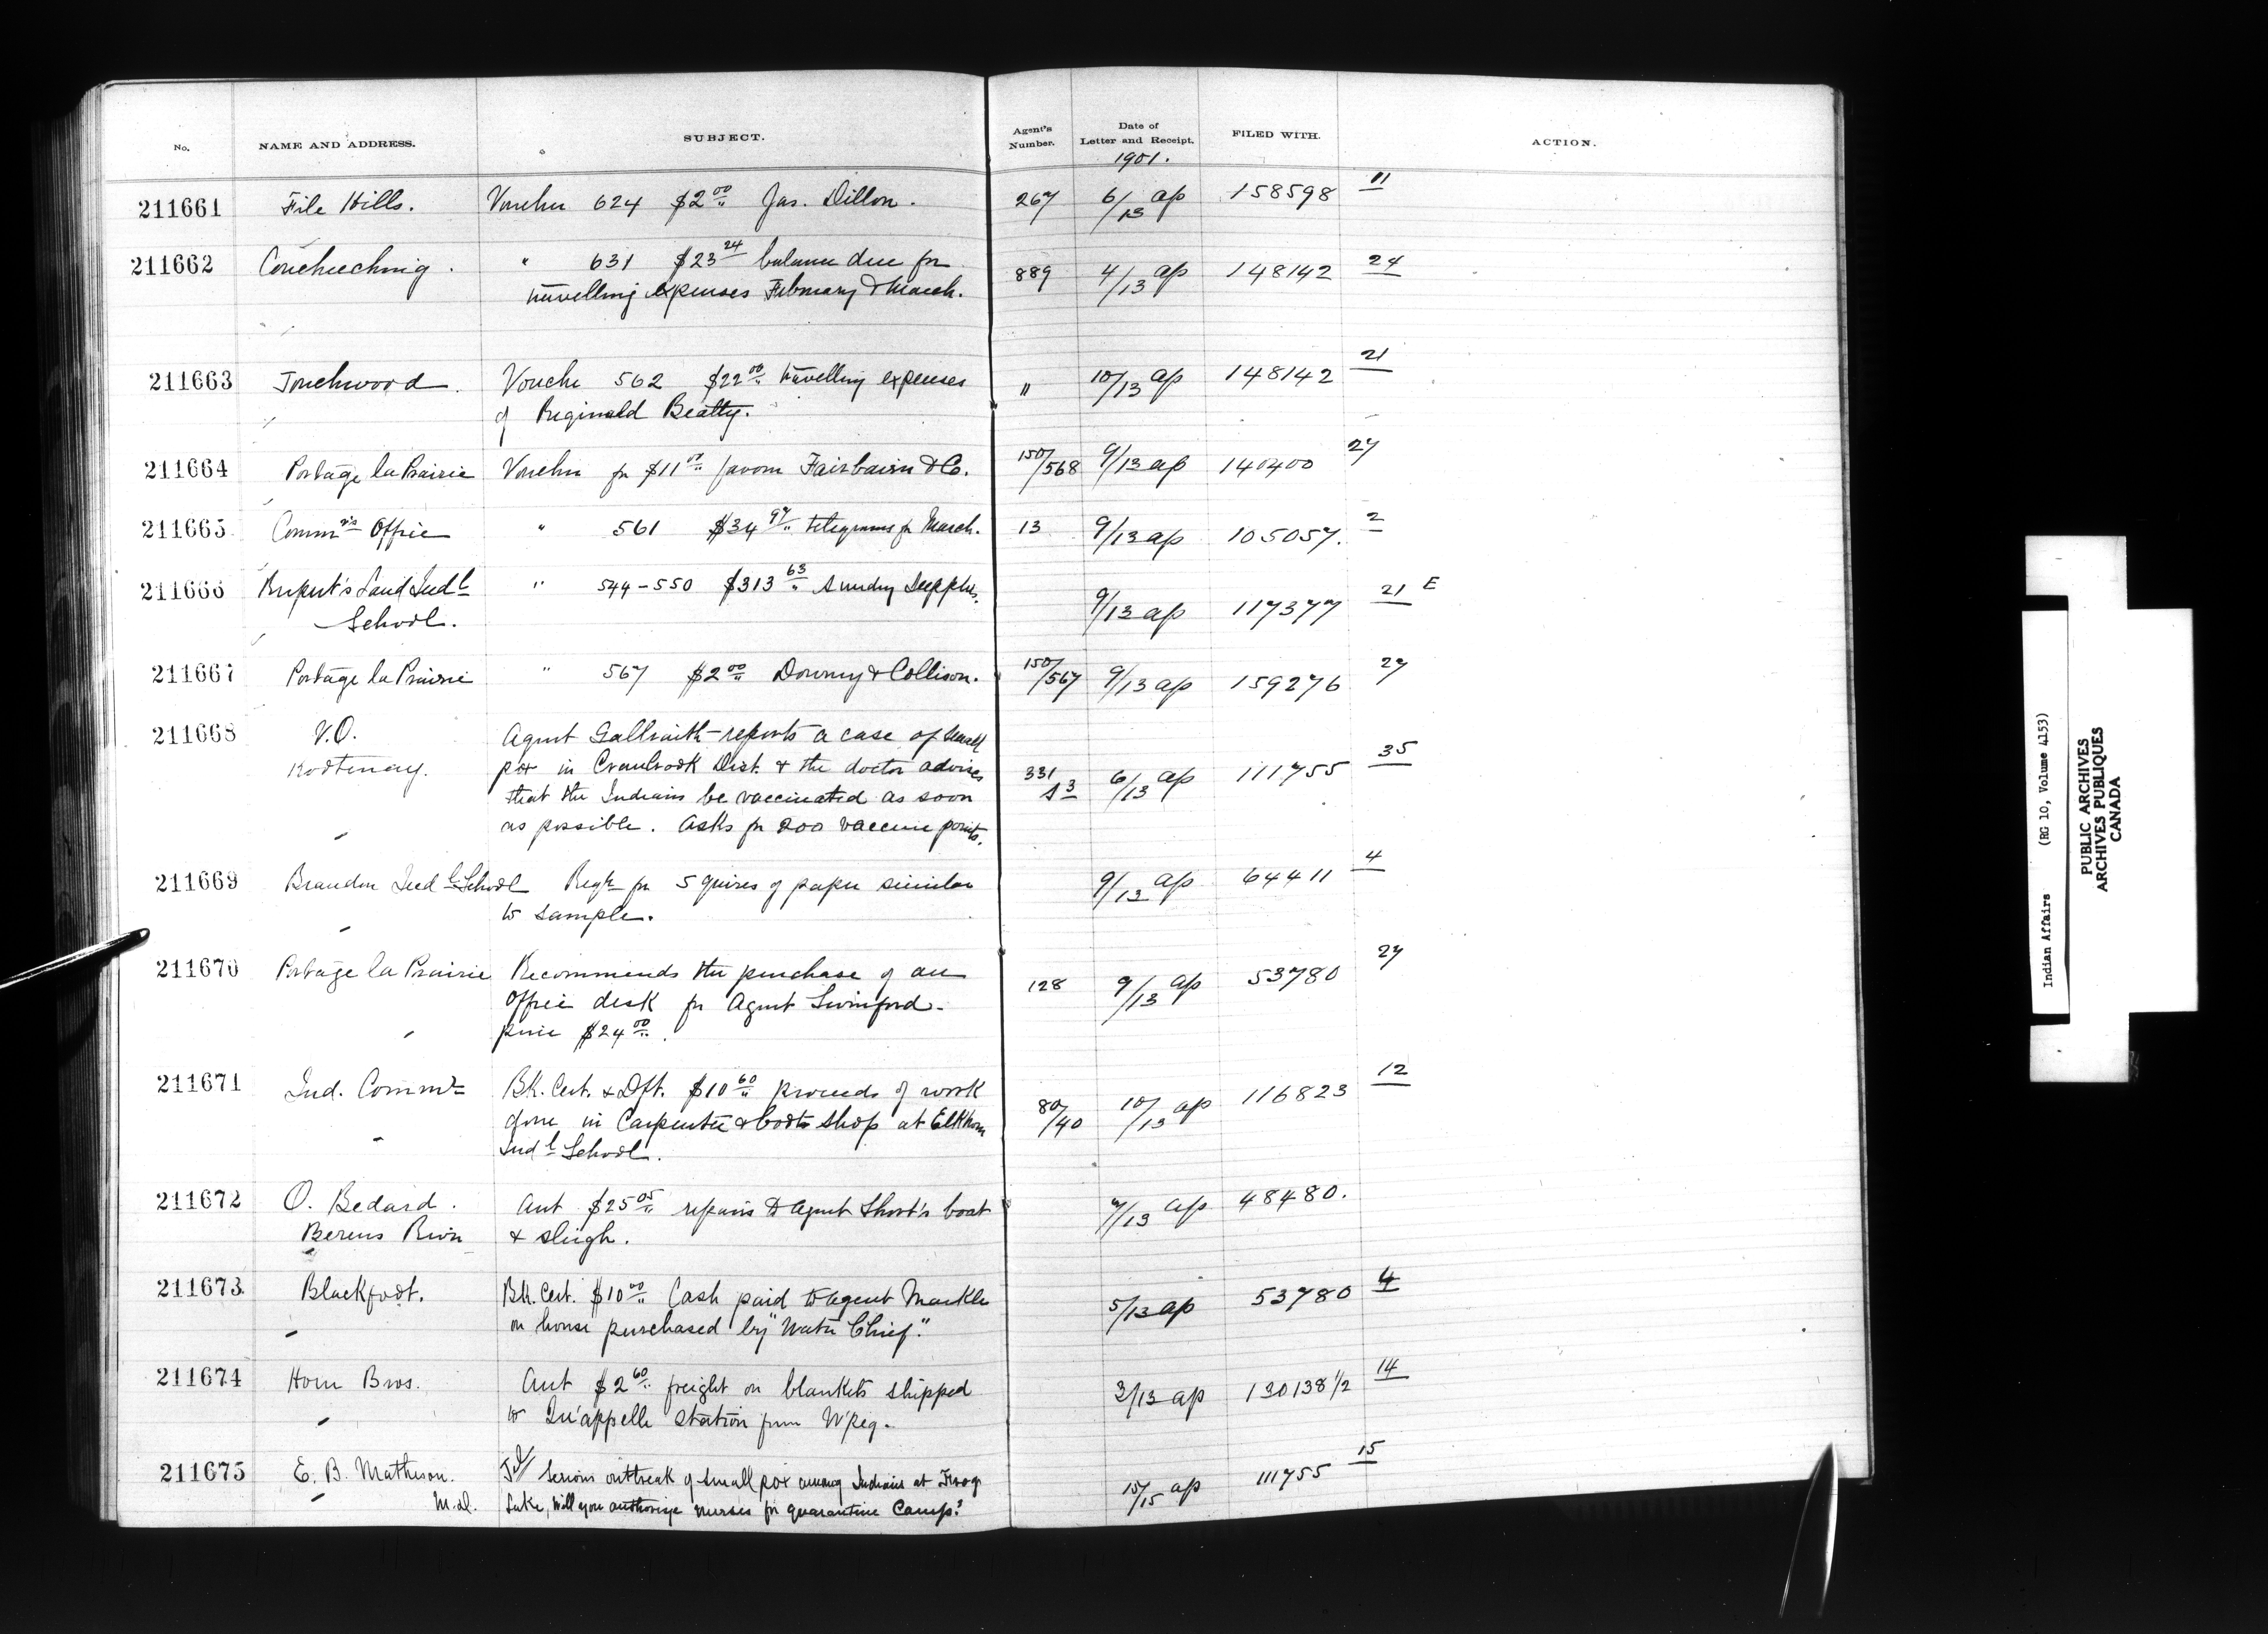 No. NAME AND ADDRESS. SUBJECT. Agent's Number. Date of Letter and Receipt. FILED WITH. ACTION.
1901.
211661 File Hills. Voucher 624 $2.00 Jas. Dillon. 267 6/13 ap 158598 11
211662 Coucheeching. " 631 $23.24 balance due for 889 4/13 ap 148142 24
travelling expenses February & March.
211663 Touchwood. Voucher 562 $22.00 travelling expenses " 10/13 ap 148142 21
of Reginald Beatty.
211664 Portage la Prairie Voucher for $11.00 favour Fairbairn & Co. 150/568 9/13 ap 140400 27
211665 Commr's Office " 561 $34.97 telegrams for March. 13 9/13 ap 105057. 2
211666 Rupert's Land Indl " 544-550 $313.63 Sundry Supplies. 9/13 ap 117377 21 E
School.
211667 Portage la Prairie " 567 $2.00 Downey & Collison. 150/567 9/13 ap 159276 27
211668 V.O. Agent Galbraith reports a case of small
Kootenay. pox in Cranbrook Dist. & the doctor advises 331 6/13 ap 111755 35
that the Indians be vaccinated as soon
as possible. Asks for 200 vaccine points.
211669 Brandon Indl School Reqn for 5 quires of paper similar 9/13 ap 64411 4
to sample.
211670 Portage la Prairie Recommends the purchase of an 128 9/13 ap 53780 27
Office desk for Agent Swinford.
price $24.00.
211671 Ind. Commr Bk. Cert. & Dft. $10.60 proceeds of work 80/40 10/13 ap 116823 12
done in Carpenter & boot shop at Elkhorn
Indl School.
211672 O. Bedard. Acct $25.05 repairs to Agent Short's boat /13 ap 48480.
Berens River & sleigh.
211673 Blackfoot. Bk. Cert. $10.00 Cash paid to Agent Markle 5/13 ap 53780 4
on house purchased by "Water Chief."
211674 Horn Bros. Acct $2.60 freight on blankets shipped 3/13 ap 130138 1/2 14
to Qu'appelle station from W'peg.
211675 E. B. Matheson. Serious outbreak of small pox among Indians at Frog 15/15 ap 111755 15
M.D. Lake, Will you authorize nurses for quarantine Camp?
Indian Affairs (RG 10, Volume 4153)
PUBLIC ARCHIVES
ARCHIVES PUBLIQUES
CANADA